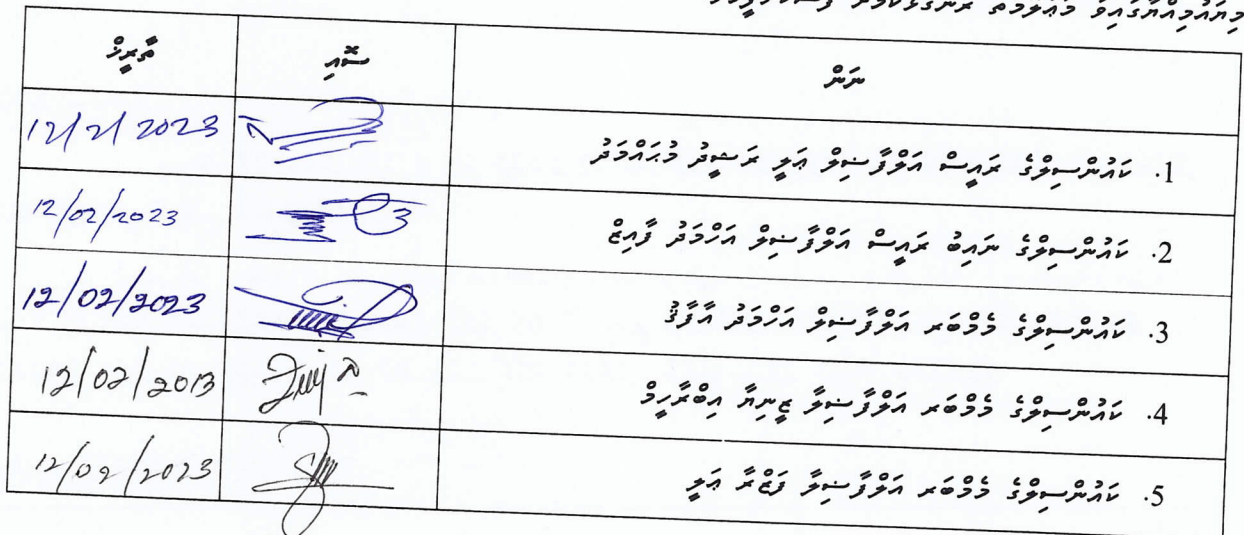 ނަން ސޮއި ތާރީޚް
1. ކައުންސިލްގެ ރައީސް އަލްފާޟިލް ޢަލީ ރަޝީދު މުޙައްމަދު 12/2/2023
2. ކައުންސިލްގެ ނައިބު ރައީސް އަލްފާޟިލް އަހްމަދު ފާއިޒް 12/02/2023
3. ކައުންސިލްގެ މެމްބަރ އަލްފާޟިލް އަހްމަދު އާފާޤު 12/02/2023
4. ކައުންސިލްގެ މެމްބަރ އަލްފާޟިލާ ޒީނިޔާ އިބްރާހީމް 12/02/2013
5. ކައުންސިލްގެ މެމްބަރ އަލްފާޟިލާ ފަޒްރާ ޢަލީ 12/02/2023